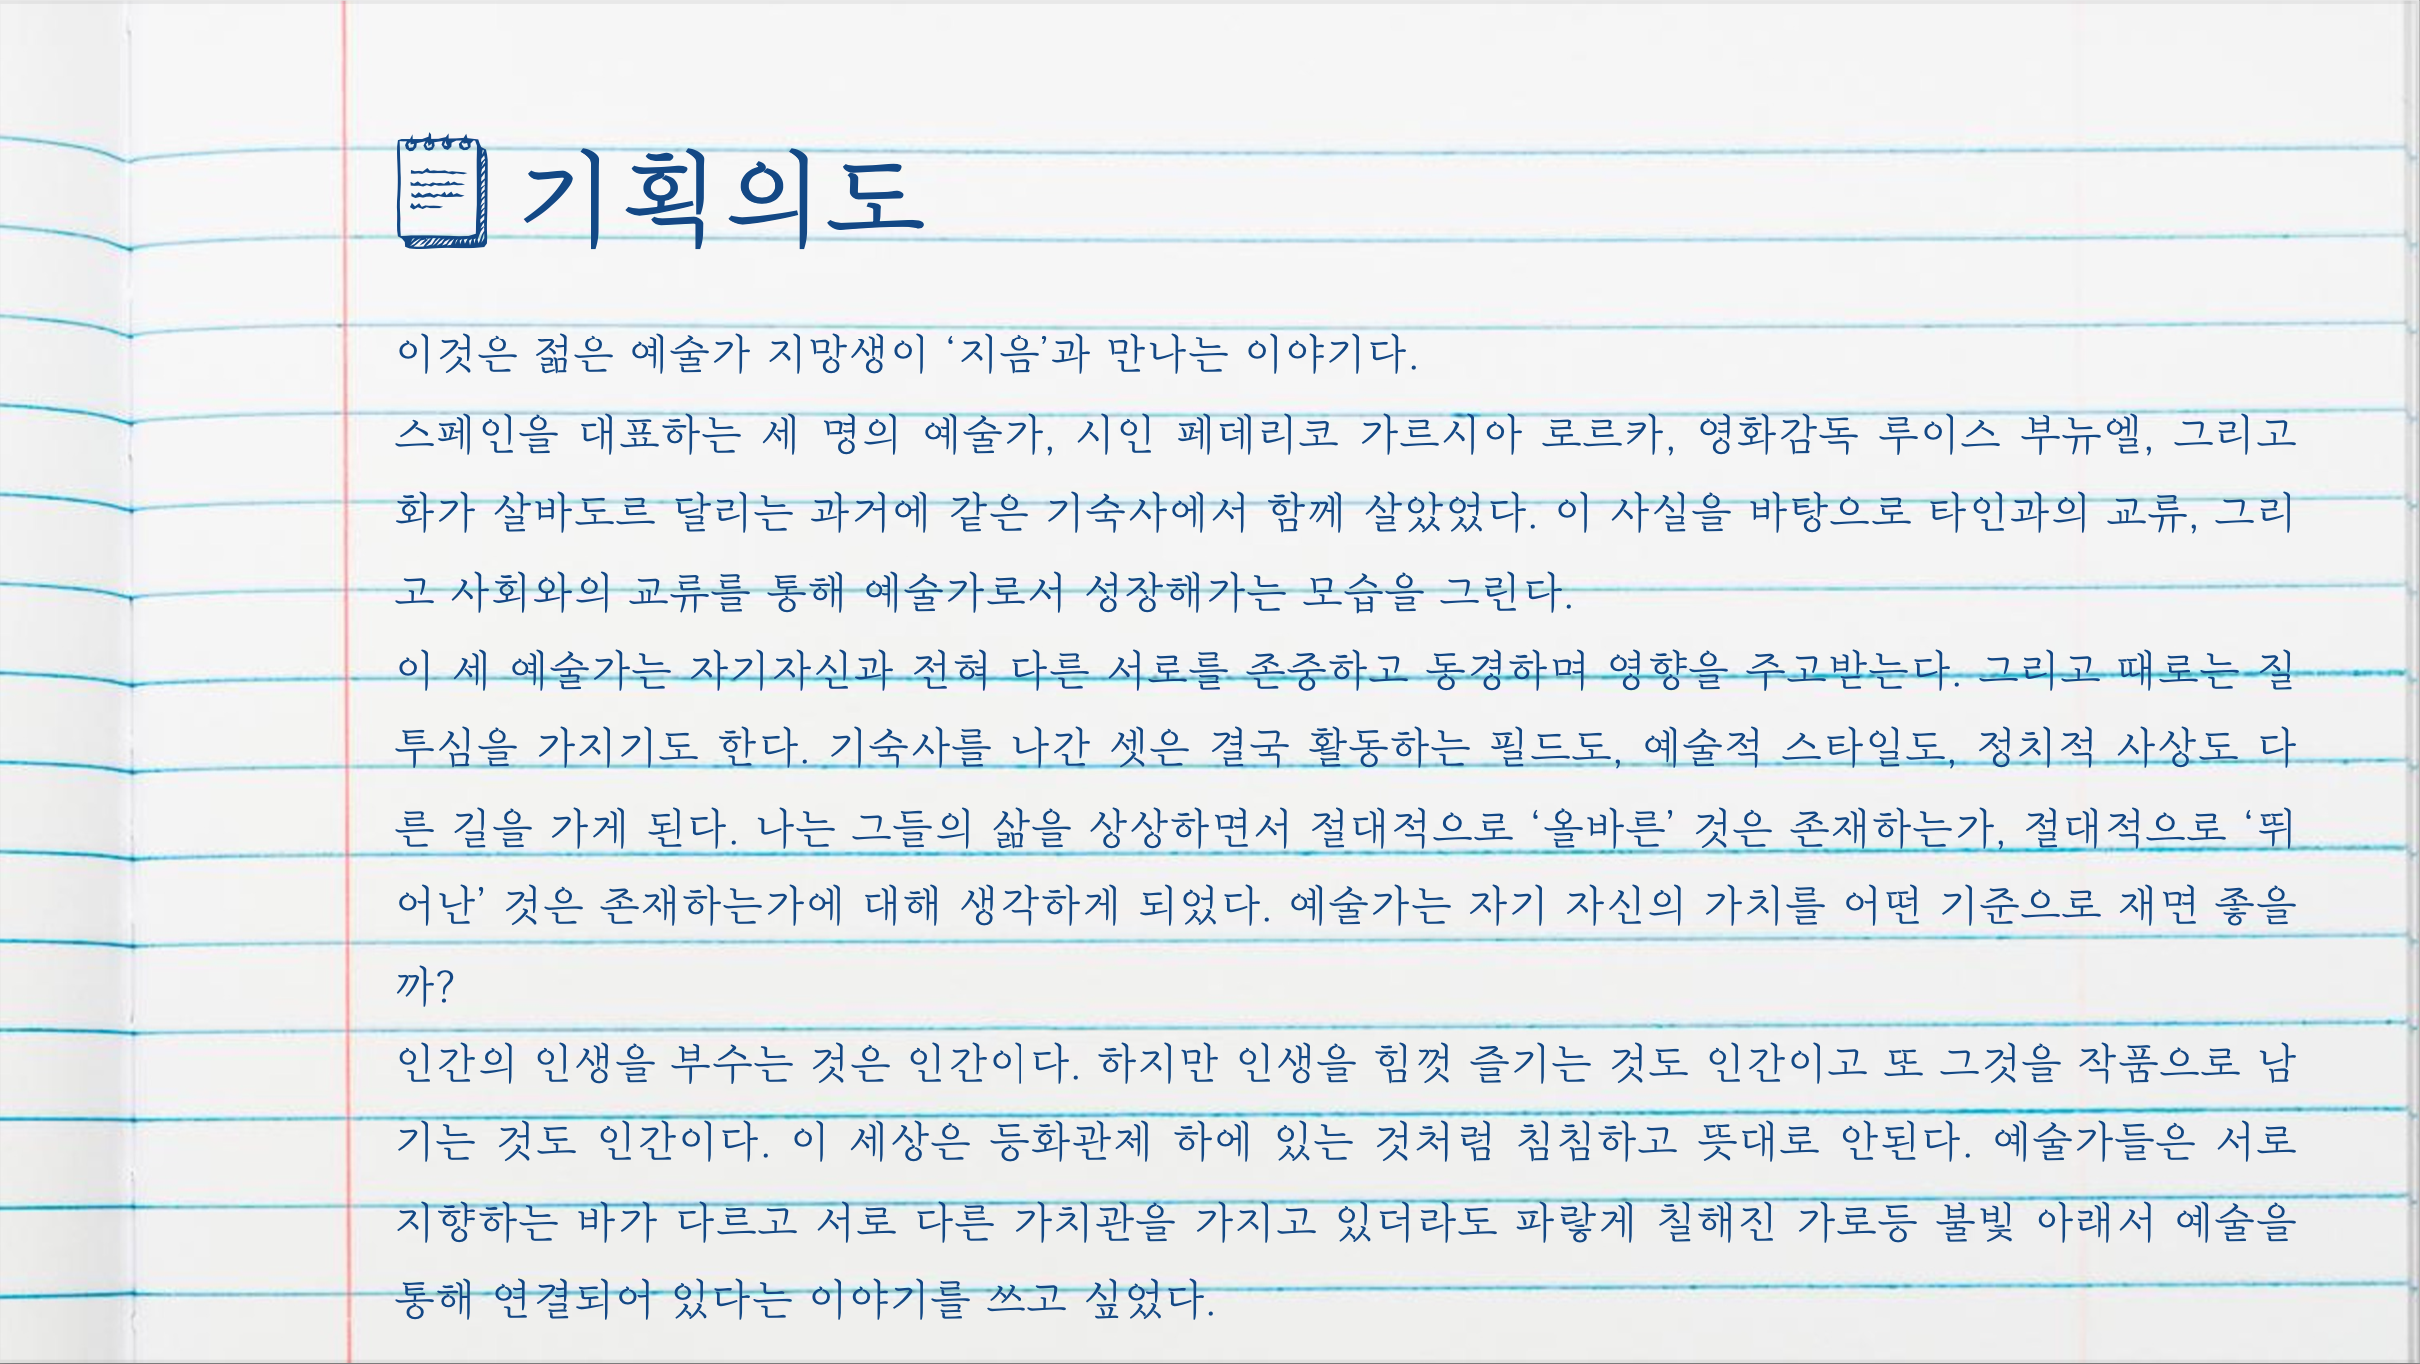 기획의도
이것은 젊은 예술가 지망생이 ‘지음’과 만나는 이야기다.
스페인을 대표하는 세 명의 예술가, 시인 페데리코 가르시아 로르카, 영화감독 루이스 부뉴엘, 그리고
화가 살바도르 달리는 과거에 같은 기숙사에서 함께 살았었다. 이 사실을 바탕으로 타인과의 교류, 그리
고 사회와의 교류를 통해 예술가로서 성장해가는 모습을 그린다.
이 세 예술가는 자기자신과 전혀 다른 서로를 존중하고 동경하며 영향을 주고받는다. 그리고 때로는 질
투심을 가지기도 한다. 기숙사를 나간 셋은 결국 활동하는 필드도, 예술적 스타일도, 정치적 사상도 다
른 길을 가게 된다. 나는 그들의 삶을 상상하면서 절대적으로 ‘올바른’ 것은 존재하는가, 절대적으로 ‘뛰
어난’ 것은 존재하는가에 대해 생각하게 되었다. 예술가는 자기 자신의 가치를 어떤 기준으로 재면 좋을
까?
인간의 인생을 부수는 것은 인간이다. 하지만 인생을 힘껏 즐기는 것도 인간이고 또 그것을 작품으로 남
기는 것도 인간이다. 이 세상은 등화관제 하에 있는 것처럼 침침하고 뜻대로 안된다. 예술가들은 서로
지향하는 바가 다르고 서로 다른 가치관을 가지고 있더라도 파랗게 칠해진 가로등 불빛 아래서 예술을
통해 연결되어 있다는 이야기를 쓰고 싶었다.